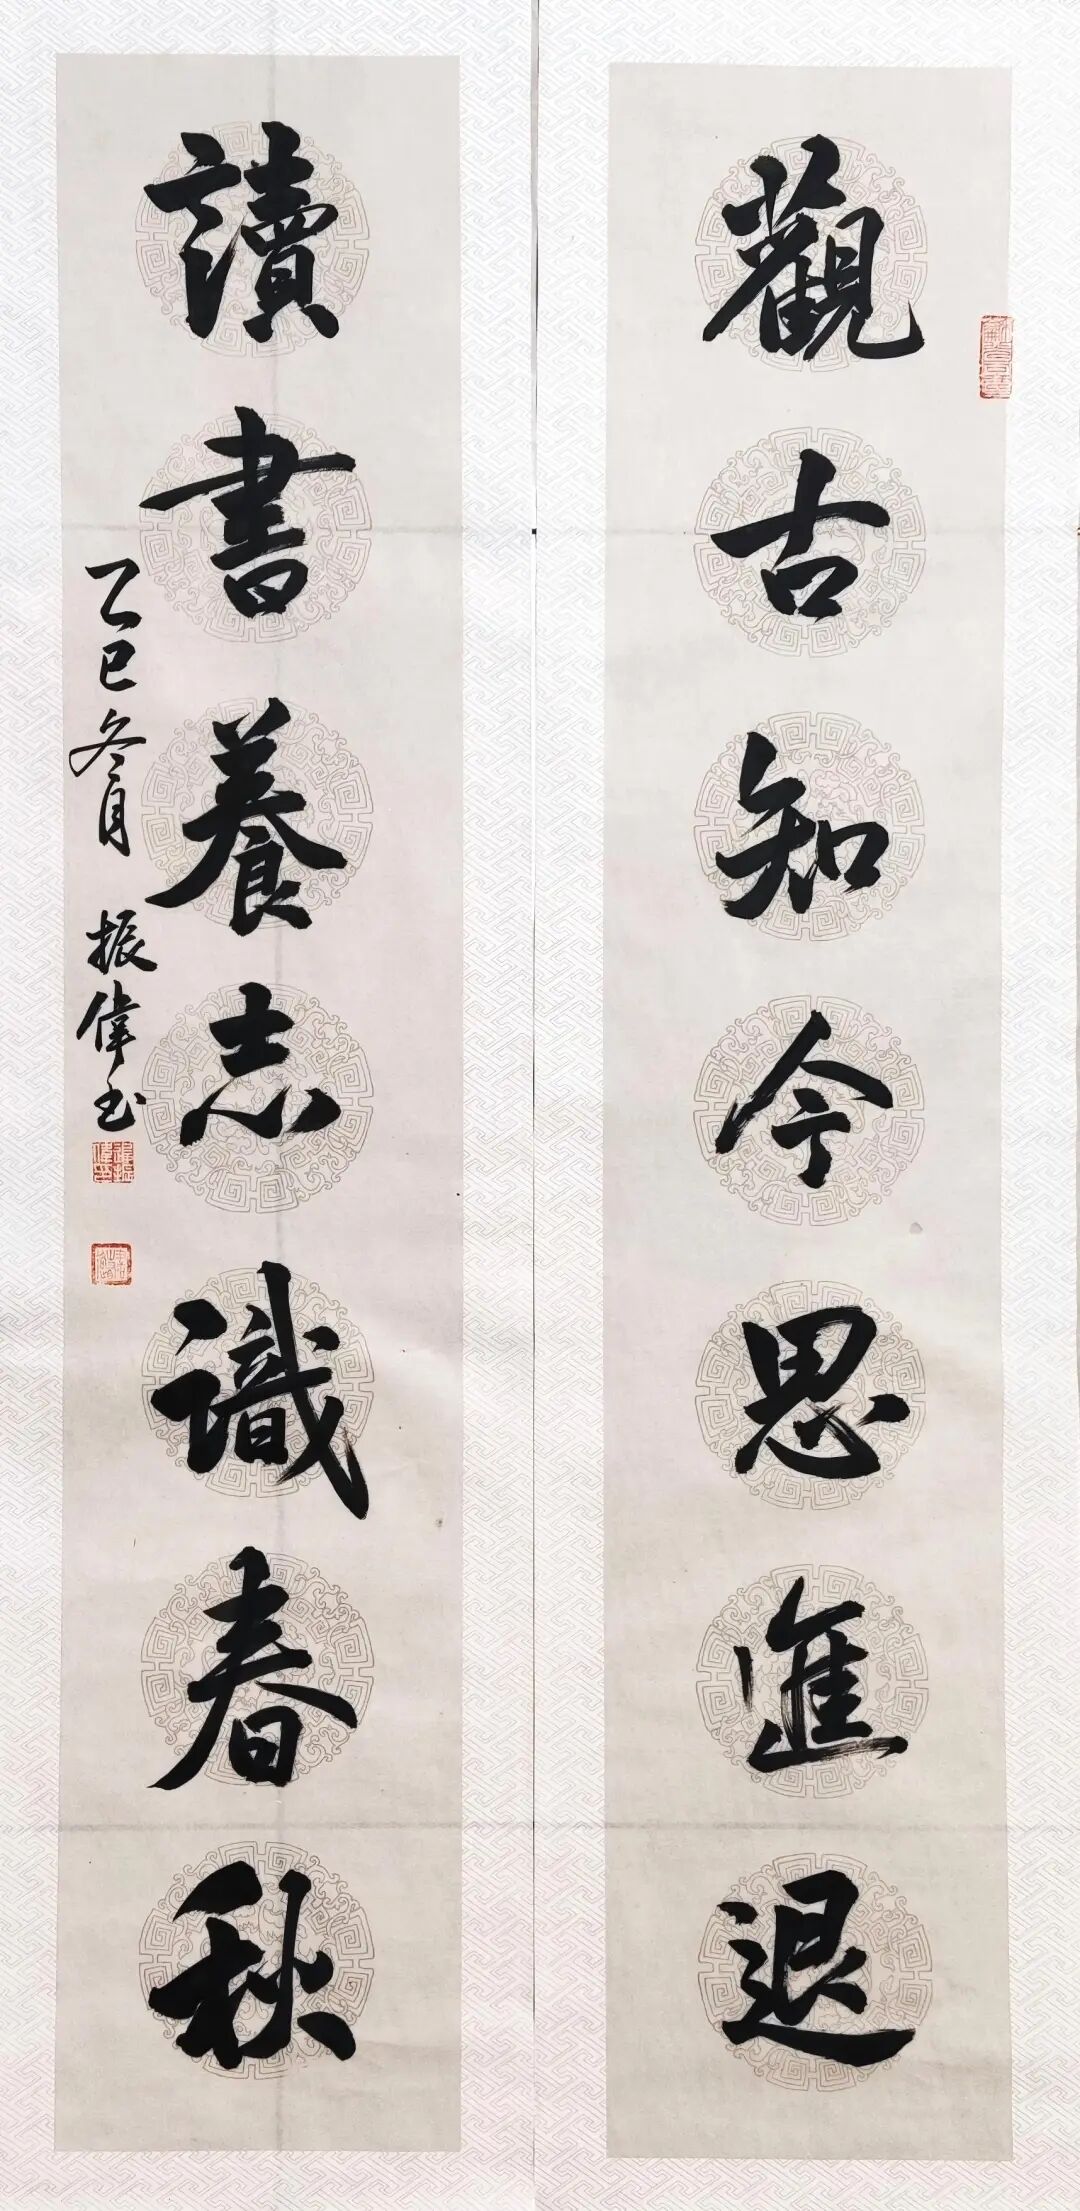 觀古知今思進退
讀書養志識春秋
乙巳冬月 振偉書